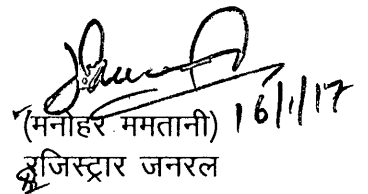 (मनोहर ममतानी) 16/1/17
रजिस्ट्रार जनरल